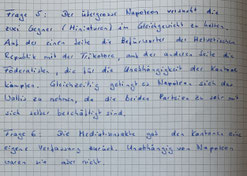 Frage 5: Der übergrosse Napoleon versucht die
zwei Gegner (Miniaturen) im Gleichgewicht zu halten.
Auf der einen Seite die Befürworter der Helvetischen
Republik mit der Trikolore, auf der anderen Seite die
Föderalisten, die für die Unabhängigkeit der Kantone
kämpfen. Gleichzeitig gelingt es Napoleon sich das
Wallis zu nehmen, da die beiden Parteien zu sehr mit
sich selber beschäftigt sind.
Frage 6: Die Mediationsakte gab den Kantonen eine
eigene Verfassung zurück. Unabhängig von Napoleon
waren sie aber nicht.